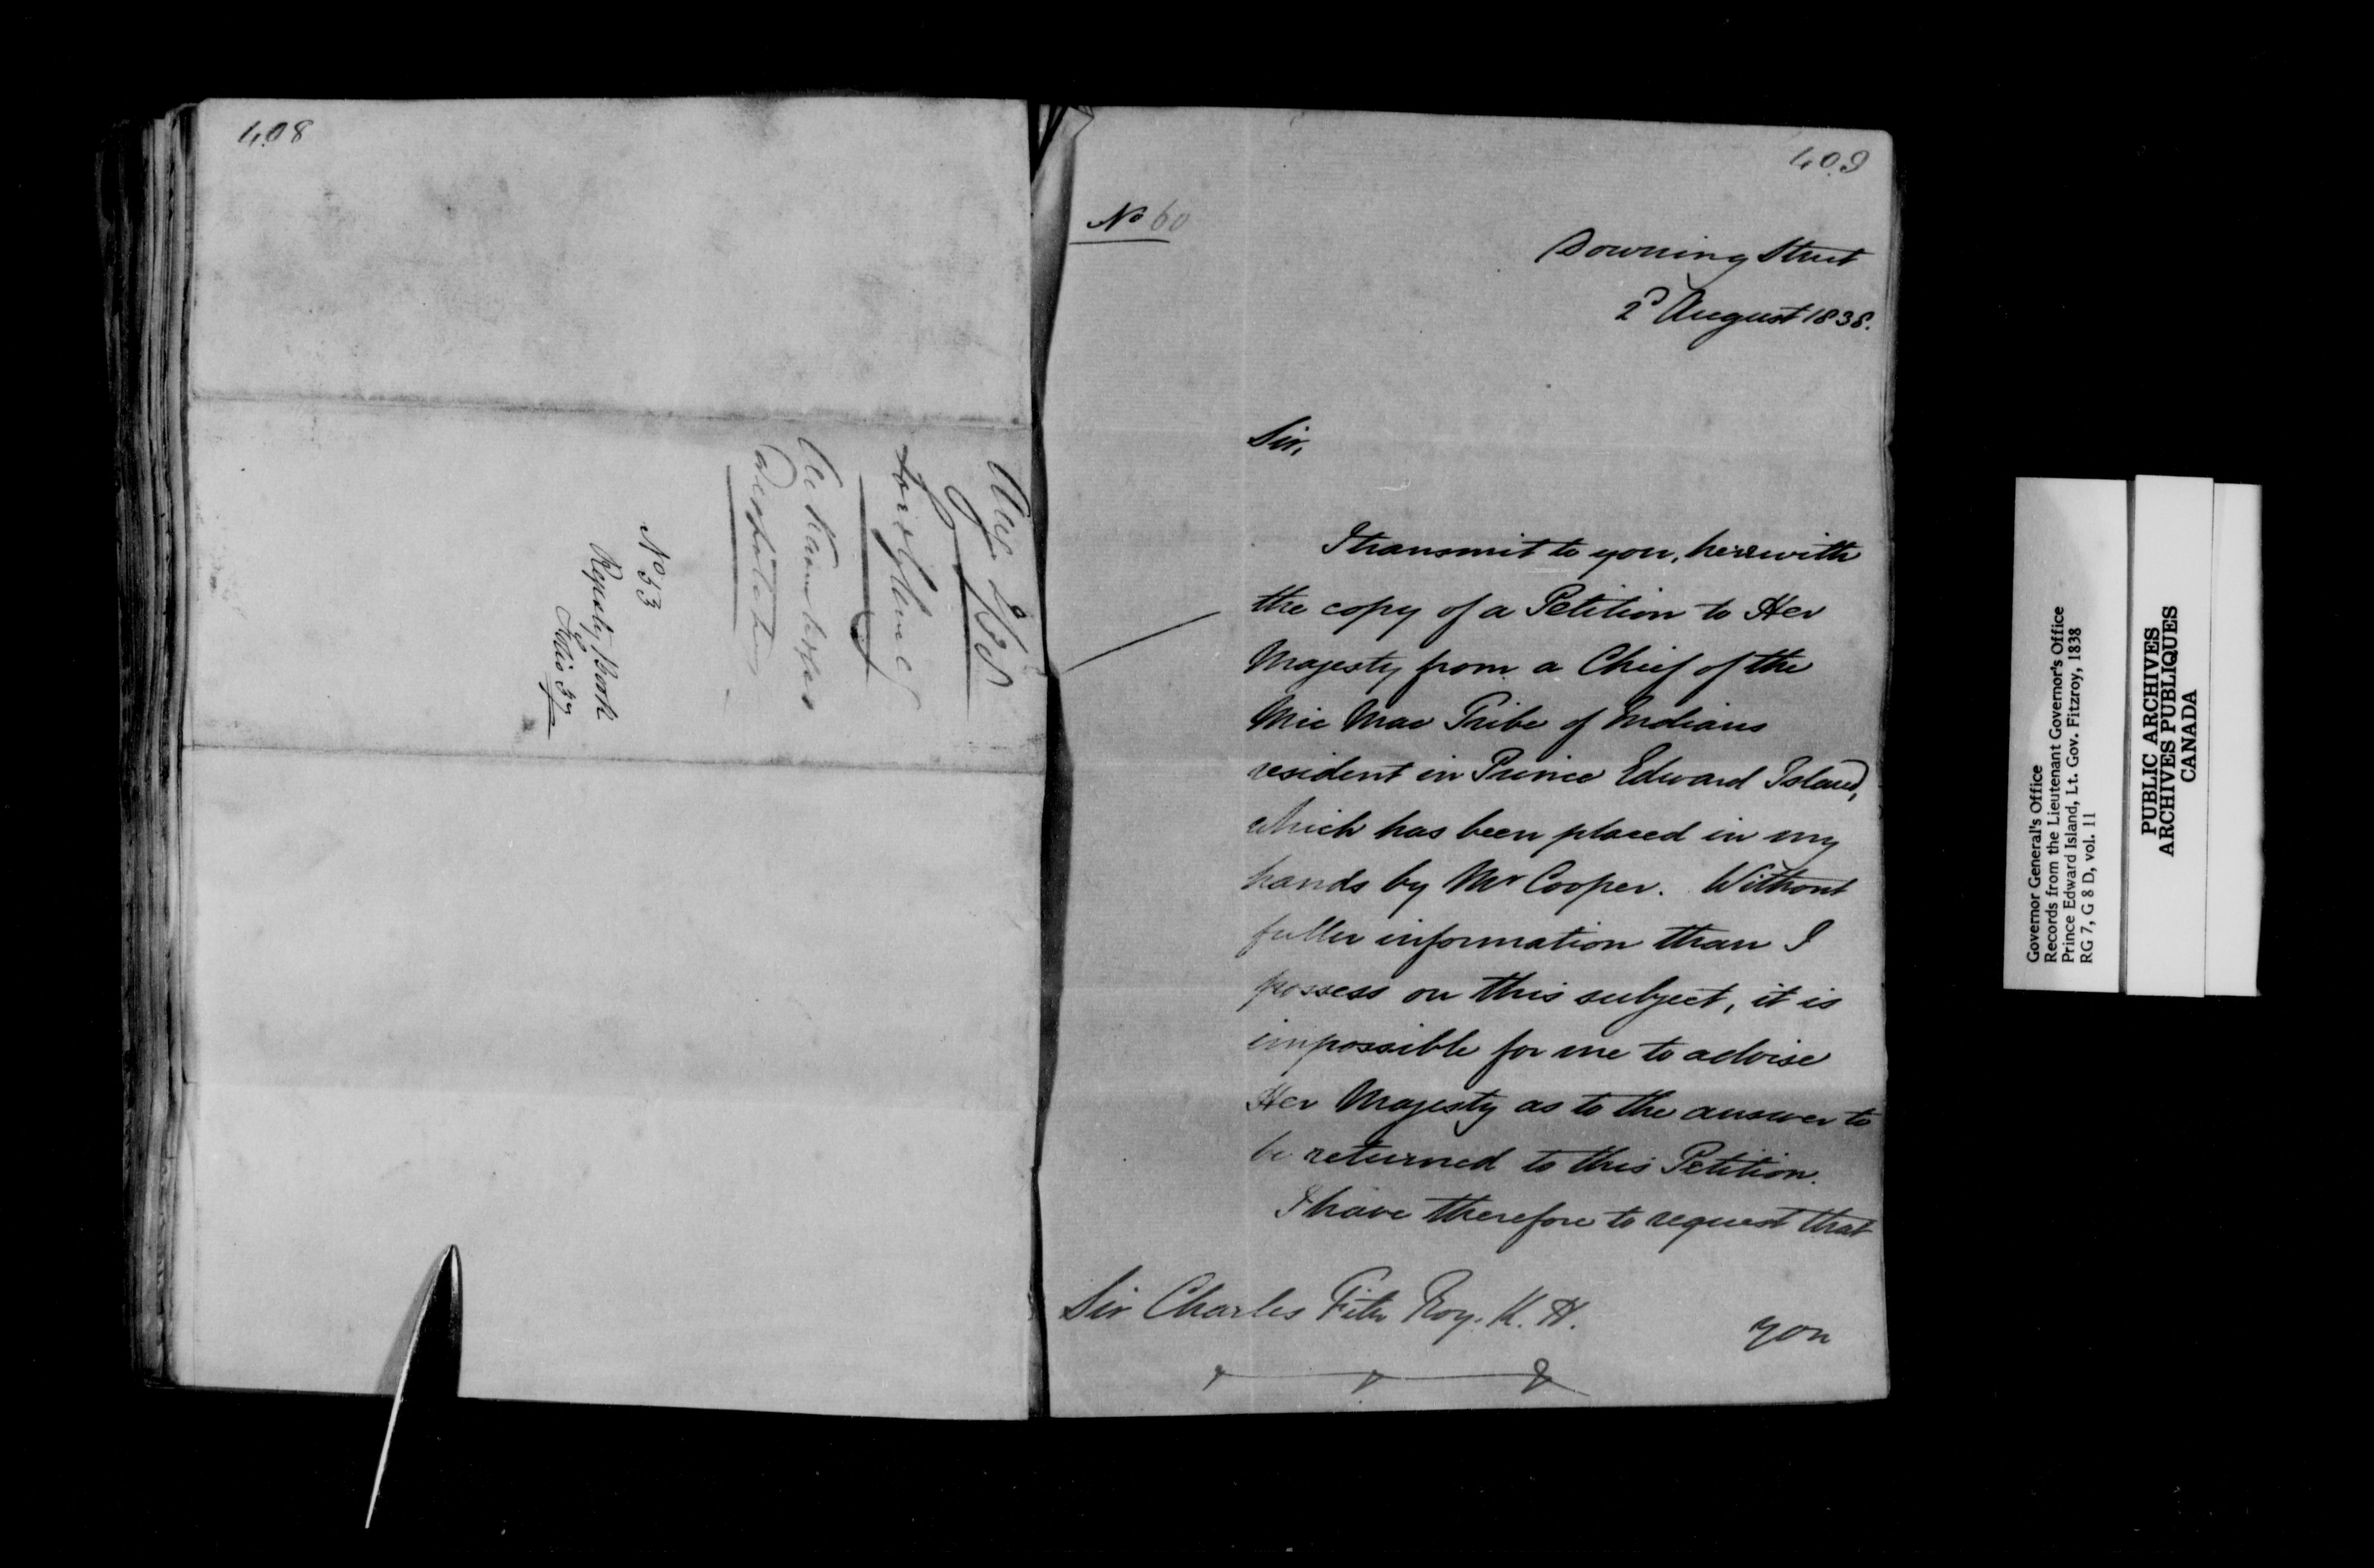 408
Aug. 2 /38
Lord Glenelg
No 53
Reply Book
Folio 34
409
No 60
Downing Street
2d August 1838.
Sir,
I transmit to you, herewith
the copy of a Petition to Her
Majesty from a Chief of the
Mic Mac Tribe of Indians
resident in Prince Edward Island,
which has been placed in my
hands by Mr Cooper. Without
fuller information than I
possess on this subject, it is
impossible for me to advise
Her Majesty as to the answer to
be returned to this Petition.
I have therefore to request that
Sir Charles Fitz Roy. K. H.
you
Governor General's Office
Records from the Lieutenant Governor's Office
Prince Edward Island, Lt. Gov. Fitzroy, 1838
RG 7, G 8 D, vol. 11
PUBLIC ARCHIVES
ARCHIVES PUBLIQUES
CANADA